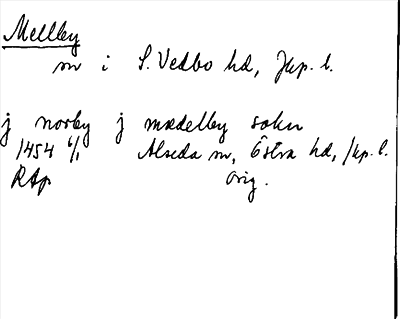 Mellby
sn i S. Vedbo hd, Jkp. l.
j norby j mædelby sokn
1454 6/1 Alseda sn, Östra hd, Jkp. l.
RAp orig.